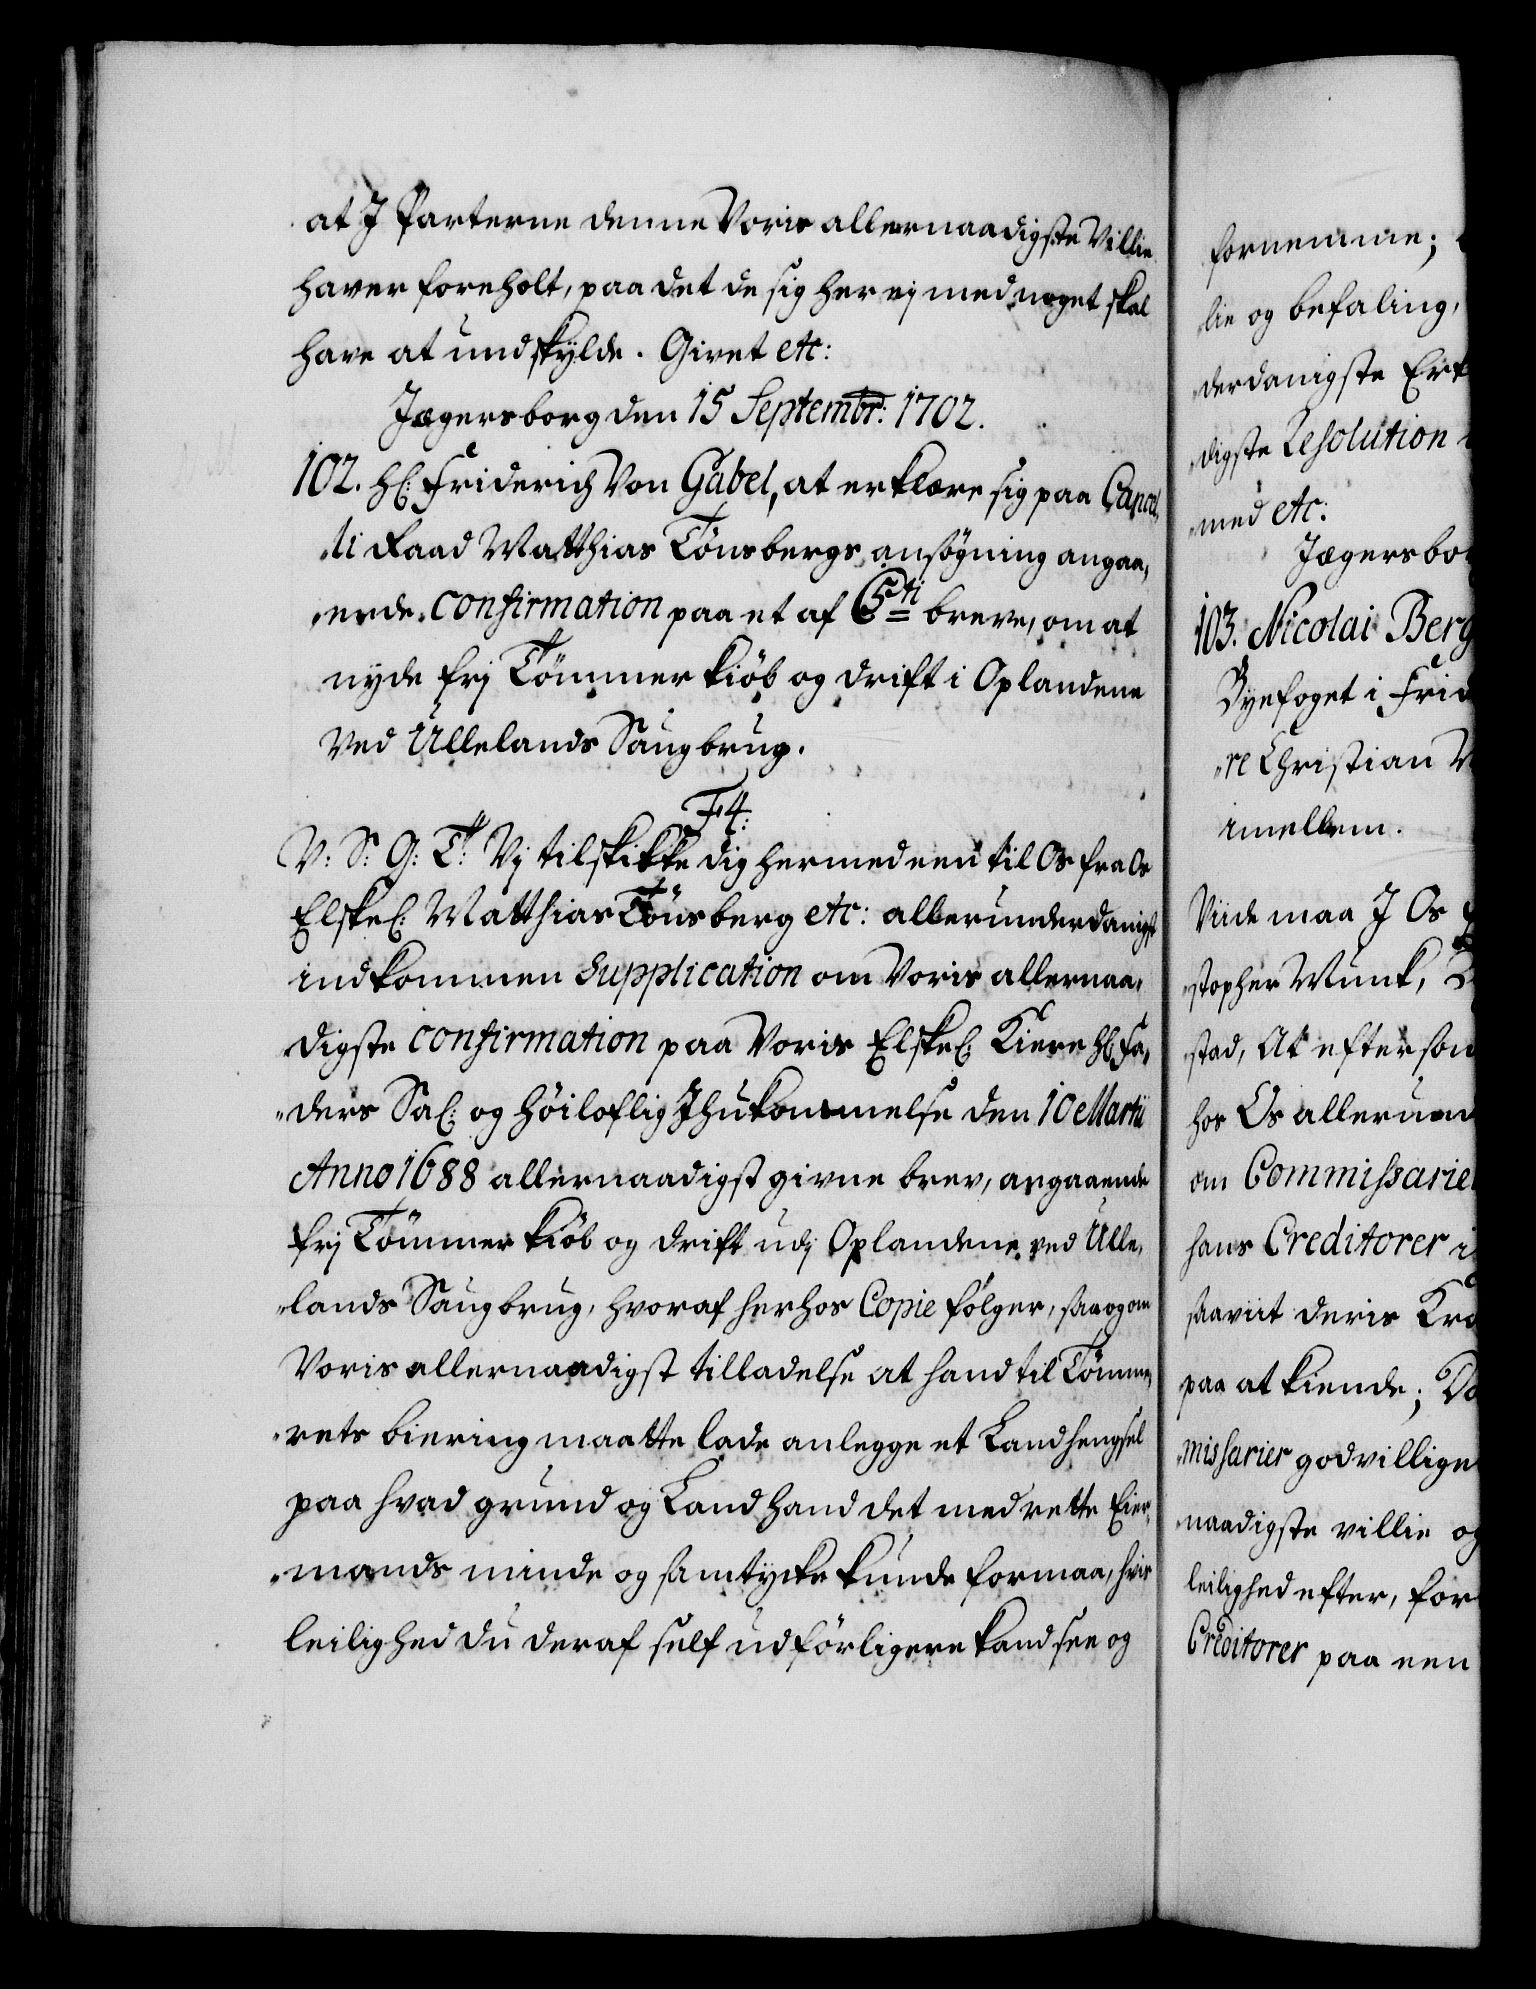 at J Parterne denne Voris allernaadigste Villie
haver foreholt, paa det de sig her ej med noget skal
have at undskylde. Givet etc:
Jægersborg den 15 Septembr: 1702.
102. H: Friderich Von Gabel, at erklære sig paa Cancel,
„li Raad Matthias Tönsbergs ansögning angaa,
„ende confirmation paa et af C 5ti breve, om at
nyde frj Tömmer kiöb og drift i Oplandene
Ved Ullelands Saugbrug.
F4:
V: S: G: T: Vj tilskikke dig hermed een til Os fra Os
Elskel: Matthias Tönsberg etc: allerunderdanigst
indkommen Supplication om Voris allernaa,
digste confirmation paa Voris Elskel: Kiere Hr Fa,
„ders Sal: og Höiloflig Jhukommelse den 10 Martij
Anno 1688 allernaadigst givne brev, angaaende
frj Tömmer kiöb og drift udj Oplandene ved Ulle,
„lands Saugbrug, hvoraf herhos Copie fölger, saa og om
Voris allernaadigst tilladelse at hand til Tömme,
„rets biering maatte lade anlegge et Landhengsel
paa hvad grund og Land hand det med rette Eier,
„mands minde og samtycke kunde formaa, hvis
leilighed du deraf self udförligere kand see og
fornemme;
„lie og befaling,
„derdanigste Erk
„digste Resolution
„med etc:
Jægersbor
103. Nicolai Berg
Byefoget i Frid
„re Christian
imellem.
Viide maa J Os
„stopher Munk,
„stad, At eftersom
hos Os allerund
om Commissarie
hans Creditorer i
saavit deris Kra
paa at kiende; Da
„missarier godvillige
„naadigste villie og
leilighed efter, for
Creditorer paa een